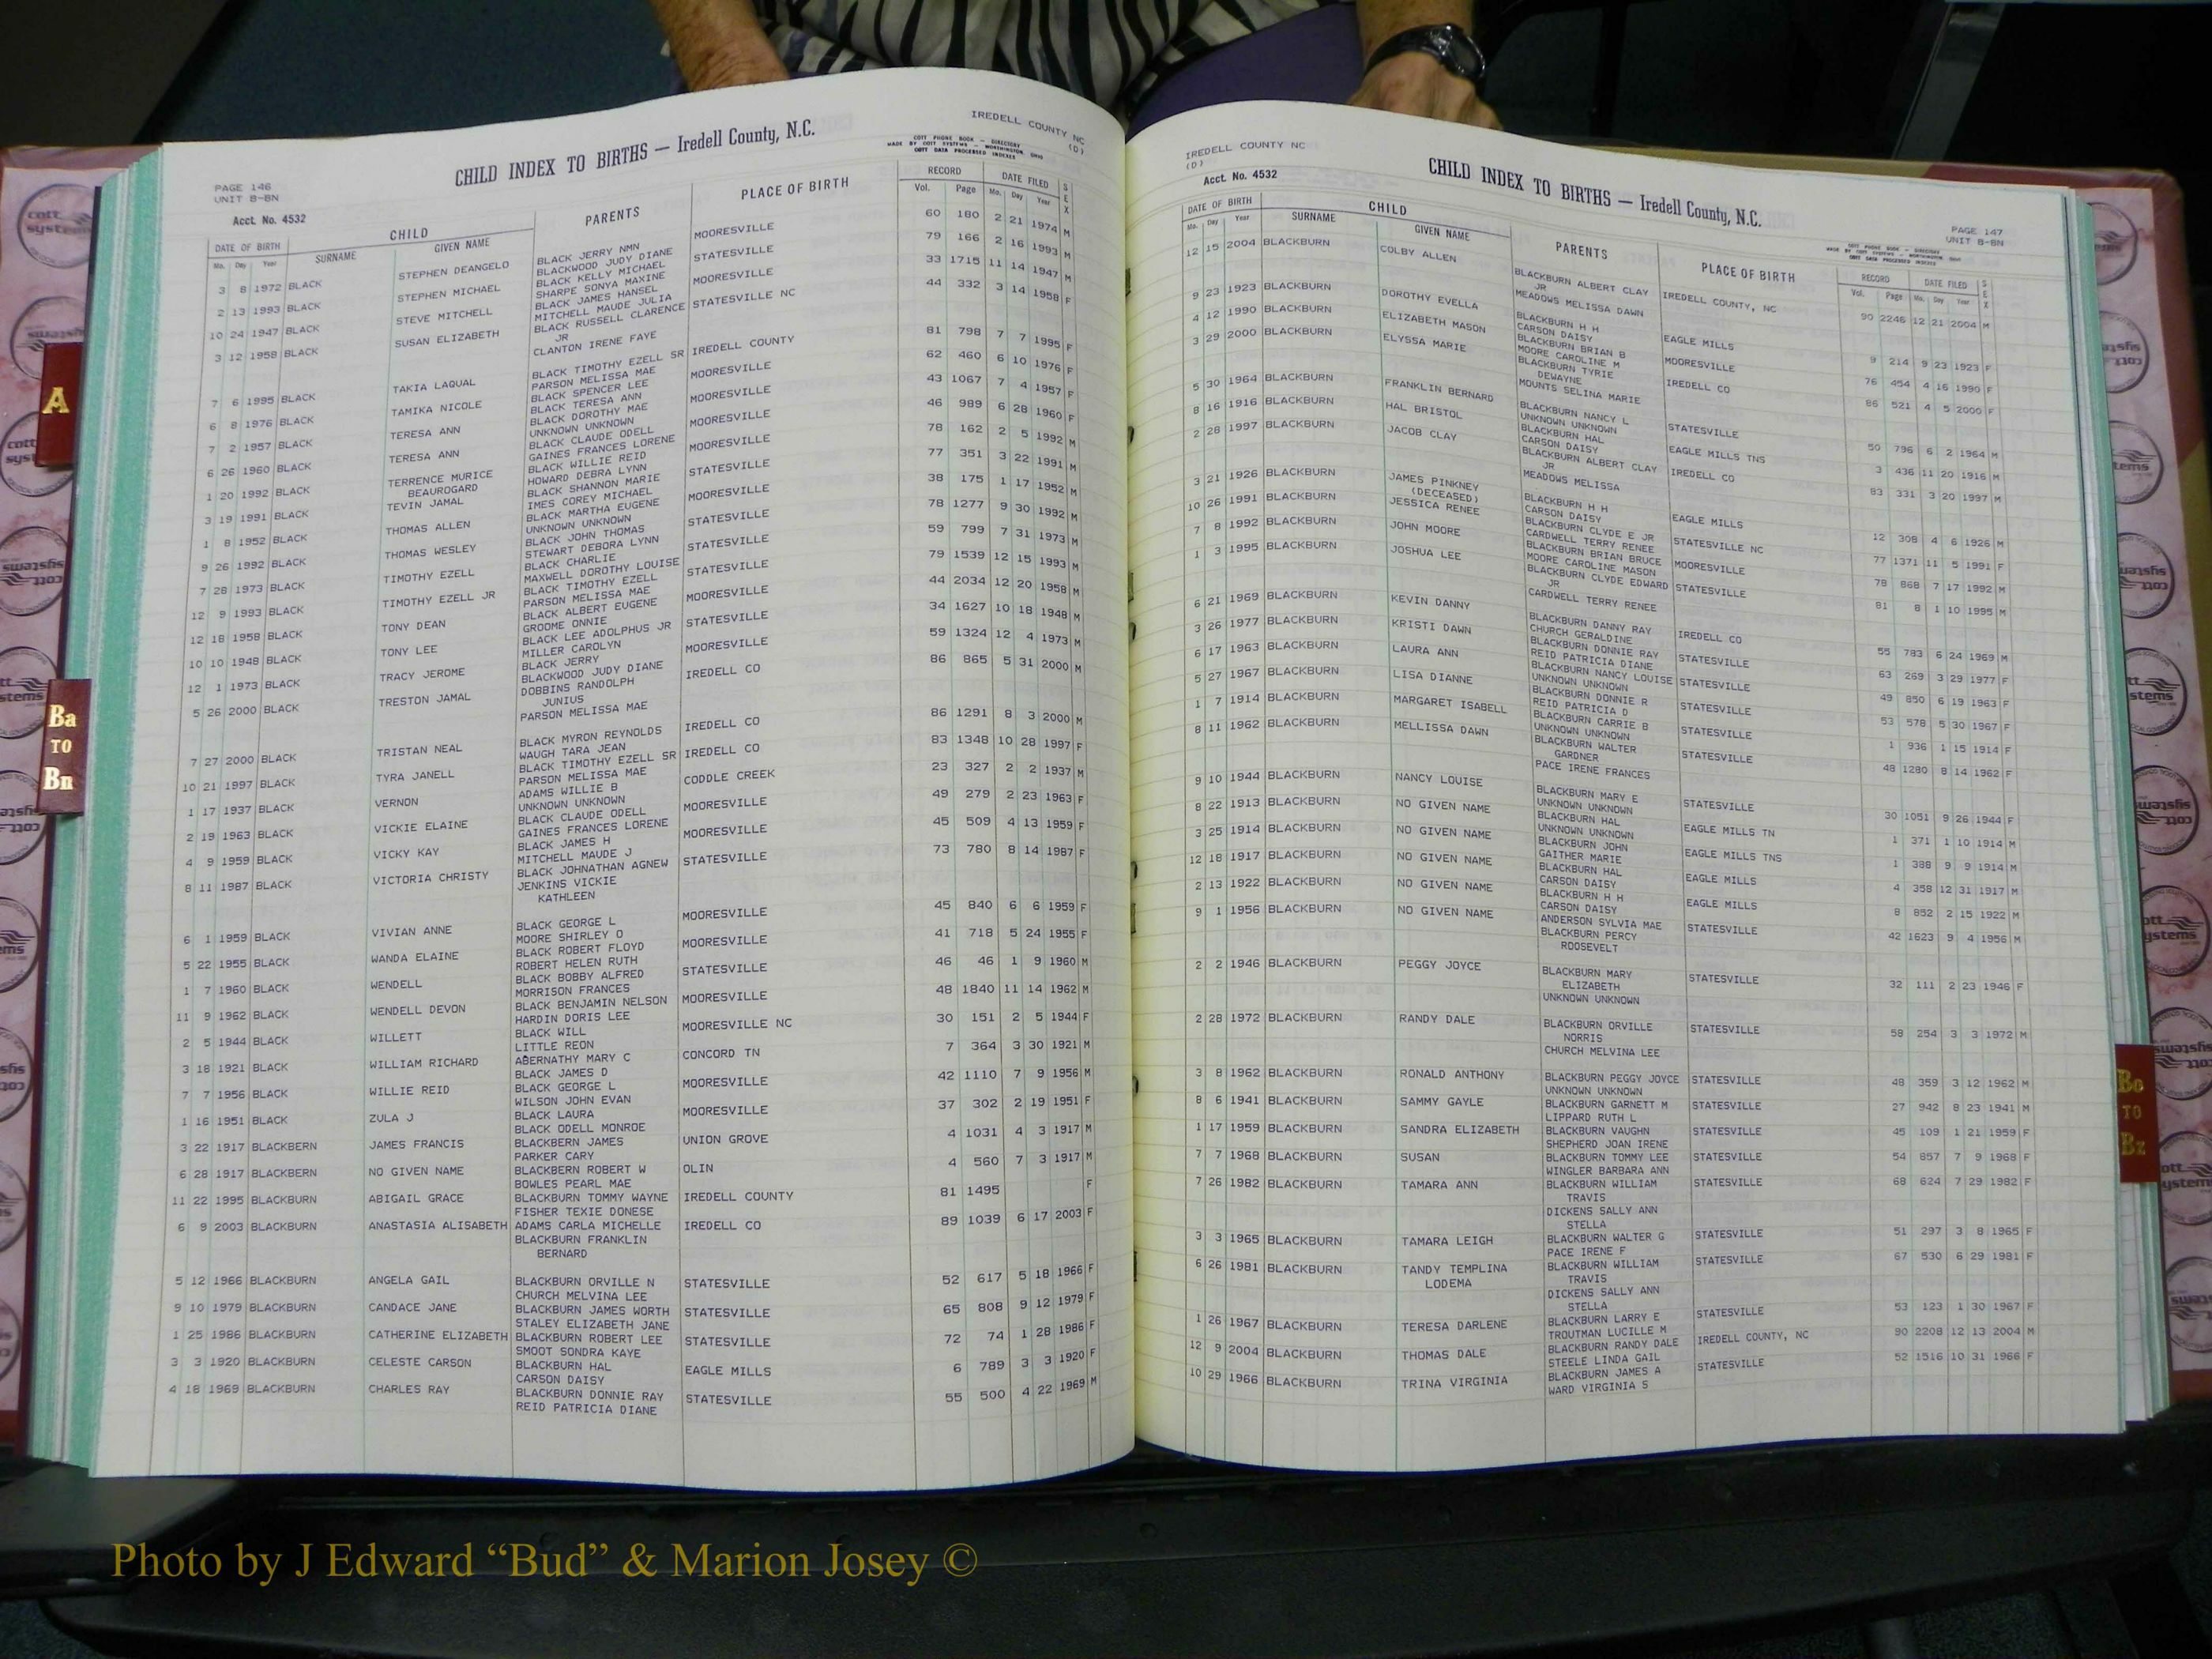 IREDELL COUNTY NC
(D)
PAGE 146
UNIT B-BN
CHILD INDEX TO BIRTHS — Iredell County, N.C.
COTT PHONE BOOK – DIRECTORY
MADE BY COTT SYSTEMS – WORTHINGTON, OHIO
COTT DATA PROCESSED INDEXES
Acct. No. 4532
DATE OF BIRTH CHILD PARENTS PLACE OF BIRTH RECORD DATE FILED SEX
Mo. Day Year SURNAME GIVEN NAME Vol. Page Mo. Day Year
3 8 1972 BLACK STEPHEN DEANGELO BLACK JERRY NMN MOORESVILLE 60 180 2 21 1974 M
BLACKWOOD JUDY DIANE
2 13 1993 BLACK STEPHEN MICHAEL BLACK KELLY MICHAEL STATESVILLE 79 166 2 16 1993 M
SHARPE SONYA MAXINE
10 24 1947 BLACK STEVE MITCHELL BLACK JAMES HANSEL MOORESVILLE 33 1715 11 14 1947 M
MITCHELL MAUDE JULIA
3 12 1958 BLACK SUSAN ELIZABETH BLACK RUSSELL CLARENCE STATESVILLE NC 44 332 3 14 1958 F
JR
CLANTON IRENE FAYE
7 6 1995 BLACK TAKIA LAQUAL BLACK TIMOTHY EZELL SR IREDELL COUNTY 81 798 7 7 1995 F
PARSON MELISSA MAE
6 8 1976 BLACK TAMIKA NICOLE BLACK SPENCER LEE MOORESVILLE 62 460 6 10 1976 F
BLACK TERESA ANN
7 2 1957 BLACK TERESA ANN BLACK DOROTHY MAE MOORESVILLE 43 1067 7 4 1957 F
UNKNOWN UNKNOWN
6 26 1960 BLACK TERESA ANN BLACK CLAUDE ODELL MOORESVILLE 46 989 6 28 1960 F
GAINES FRANCES LORENE
1 20 1992 BLACK TERRENCE MURICE BLACK WILLIE REID MOORESVILLE 78 162 2 5 1992 M
BEAUROGARD HOWARD DEBRA LYNN
3 19 1991 BLACK TEVIN JAMAL BLACK SHANNON MARIE STATESVILLE 77 351 3 22 1991 M
IMES COREY MICHAEL
1 8 1952 BLACK THOMAS ALLEN BLACK MARTHA EUGENE MOORESVILLE 38 175 1 17 1952 M
UNKNOWN UNKNOWN
9 26 1992 BLACK THOMAS WESLEY BLACK JOHN THOMAS STATESVILLE 78 1277 9 30 1992 M
STEWART DEBORA LYNN
7 28 1973 BLACK TIMOTHY EZELL BLACK CHARLIE STATESVILLE 59 799 7 31 1973 M
MAXWELL DOROTHY LOUISE
12 9 1993 BLACK TIMOTHY EZELL JR BLACK TIMOTHY EZELL STATESVILLE 79 1539 12 15 1993 M
PARSON MELISSA MAE
12 18 1958 BLACK TONY DEAN BLACK ALBERT EUGENE MOORESVILLE 44 2034 12 20 1958 M
GROOME ONNIE
10 10 1948 BLACK TONY LEE BLACK LEE ADOLPHUS JR STATESVILLE 34 1627 10 18 1948 M
MILLER CAROLYN
12 1 1973 BLACK TRACY JEROME BLACK JERRY MOORESVILLE 59 1324 12 4 1973 M
BLACKWOOD JUDY DIANE
5 26 2000 BLACK TRESTON JAMAL DOBBINS RANDOLPH IREDELL CO 86 865 5 31 2000 M
JUNIUS
PARSON MELISSA MAE
7 27 2000 BLACK TRISTAN NEAL BLACK MYRON REYNOLDS IREDELL CO 86 1291 8 3 2000 M
WAUGH TARA JEAN
10 21 1997 BLACK TYRA JANELL BLACK TIMOTHY EZELL SR IREDELL CO 83 1348 10 28 1997 F
PARSON MELISSA MAE
1 17 1937 BLACK VERNON ADAMS WILLIE B CODDLE CREEK 23 327 2 2 1937 M
UNKNOWN UNKNOWN
2 19 1963 BLACK VICKIE ELAINE BLACK CLAUDE ODELL MOORESVILLE 49 279 2 23 1963 F
GAINES FRANCES LORENE
4 9 1959 BLACK VICKY KAY BLACK JAMES H MOORESVILLE 45 509 4 13 1959 F
MITCHELL MAUDE J
8 11 1987 BLACK VICTORIA CHRISTY BLACK JOHNATHAN AGNEW STATESVILLE 73 780 8 14 1987 F
JENKINS VICKIE
KATHLEEN
6 1 1959 BLACK VIVIAN ANNE BLACK GEORGE L MOORESVILLE 45 840 6 6 1959 F
MOORE SHIRLEY O
5 22 1955 BLACK WANDA ELAINE BLACK ROBERT FLOYD MOORESVILLE 41 718 5 24 1955 F
ROBERT HELEN RUTH
1 7 1960 BLACK WENDELL BLACK BOBBY ALFRED STATESVILLE 46 46 1 9 1960 M
MORRISON FRANCES
11 9 1962 BLACK WENDELL DEVON BLACK BENJAMIN NELSON MOORESVILLE 48 1840 11 14 1962 M
HARDIN DORIS LEE
2 5 1944 BLACK WILLETT BLACK WILL MOORESVILLE NC 30 151 2 5 1944 F
LITTLE REON
3 18 1921 BLACK WILLIAM RICHARD ABERNATHY MARY C CONCORD TN 7 364 3 30 1921 M
BLACK JAMES D
7 7 1956 BLACK WILLIE REID BLACK GEORGE L MOORESVILLE 42 1110 7 9 1956 M
WILSON JOHN EVAN
1 16 1951 BLACK ZULA J BLACK LAURA MOORESVILLE 37 302 2 19 1951 F
BLACK ODELL MONROE
3 22 1917 BLACKBERN JAMES FRANCIS BLACKBERN JAMES UNION GROVE 4 1031 4 3 1917 M
PARKER CARY
6 28 1917 BLACKBERN NO GIVEN NAME BLACKBERN ROBERT W OLIN 4 560 7 3 1917 M
BOWLES PEARL MAE
11 22 1995 BLACKBURN ABIGAIL GRACE BLACKBURN TOMMY WAYNE IREDELL COUNTY 81 1495 F
FISHER TEXIE DONESE
6 9 2003 BLACKBURN ANASTASIA ALISABETH ADAMS CARLA MICHELLE IREDELL CO 89 1039 6 17 2003 F
BLACKBURN FRANKLIN
BERNARD
5 12 1966 BLACKBURN ANGELA GAIL BLACKBURN ORVILLE N STATESVILLE 52 617 5 18 1966 F
CHURCH MELVINA LEE
9 10 1979 BLACKBURN CANDACE JANE BLACKBURN JAMES WORTH STATESVILLE 65 808 9 12 1979 F
STALEY ELIZABETH JANE
1 25 1986 BLACKBURN CATHERINE ELIZABETH BLACKBURN ROBERT LEE STATESVILLE 72 74 1 28 1986 F
SMOOT SONDRA KAYE
3 3 1920 BLACKBURN CELESTE CARSON BLACKBURN HAL EAGLE MILLS 6 789 3 3 1920 F
CARSON DAISY
4 18 1969 BLACKBURN CHARLES RAY BLACKBURN DONNIE RAY STATESVILLE 55 500 4 22 1969 M
REID PATRICIA DIANE
IREDELL COUNTY NC
(D)
CHILD INDEX TO BIRTHS — Iredell County, N.C.
PAGE 147
UNIT B-BN
Acct. No. 4532
COTT PHONE BOOK – DIRECTORY
MADE BY COTT SYSTEMS – WORTHINGTON, OHIO
COTT DATA PROCESSED INDEXES
DATE OF BIRTH CHILD PARENTS PLACE OF BIRTH RECORD DATE FILED SEX
Mo. Day Year SURNAME GIVEN NAME Vol. Page Mo. Day Year
12 15 2004 BLACKBURN COLBY ALLEN BLACKBURN ALBERT CLAY IREDELL COUNTY, NC 90 2246 12 21 2004 M
JR
MEADOWS MELISSA DAWN
9 23 1923 BLACKBURN DOROTHY EVELLA BLACKBURN H H EAGLE MILLS 9 214 9 23 1923 F
CARSON DAISY
4 12 1990 BLACKBURN ELIZABETH MASON BLACKBURN BRIAN B MOORESVILLE 76 454 4 16 1990 F
MOORE CAROLINE M
3 29 2000 BLACKBURN ELYSSA MARIE BLACKBURN TYRIE IREDELL CO 86 521 4 5 2000 F
DEWAYNE
MOUNTS SELINA MARIE
5 30 1964 BLACKBURN FRANKLIN BERNARD BLACKBURN NANCY L STATESVILLE 50 796 6 2 1964 M
UNKNOWN UNKNOWN
8 16 1916 BLACKBURN HAL BRISTOL BLACKBURN HAL EAGLE MILLS TNS 3 436 11 20 1916 M
CARSON DAISY
2 28 1997 BLACKBURN JACOB CLAY BLACKBURN ALBERT CLAY IREDELL CO 83 331 3 20 1997 M
JR
MEADOWS MELISSA
3 21 1926 BLACKBURN JAMES PINKNEY BLACKBURN H H EAGLE MILLS 12 308 4 6 1926 M
(DECEASED) CARSON DAISY
10 26 1991 BLACKBURN JESSICA RENEE BLACKBURN CLYDE E JR STATESVILLE NC 77 1371 11 5 1991 F
CARDWELL TERRY RENEE
7 8 1992 BLACKBURN JOHN MOORE BLACKBURN BRIAN BRUCE MOORESVILLE 78 868 7 17 1992 M
MOORE CAROLINE MASON
1 3 1995 BLACKBURN JOSHUA LEE BLACKBURN CLYDE EDWARD STATESVILLE 81 8 1 10 1995 M
JR
CARDWELL TERRY RENEE
6 21 1969 BLACKBURN KEVIN DANNY BLACKBURN DANNY RAY IREDELL CO 55 783 6 24 1969 M
CHURCH GERALDINE
3 26 1977 BLACKBURN KRISTI DAWN BLACKBURN DONNIE RAY STATESVILLE 63 269 3 29 1977 F
REID PATRICIA DIANE
6 17 1963 BLACKBURN LAURA ANN BLACKBURN NANCY LOUISE STATESVILLE 49 850 6 19 1963 F
UNKNOWN UNKNOWN
5 27 1967 BLACKBURN LISA DIANNE BLACKBURN DONNIE R STATESVILLE 53 578 5 30 1967 F
REID PATRICIA D
1 7 1914 BLACKBURN MARGARET ISABELL BLACKBURN CARRIE B STATESVILLE 1 936 1 15 1914 F
UNKNOWN UNKNOWN
8 11 1962 BLACKBURN MELLISSA DAWN BLACKBURN WALTER STATESVILLE 48 1280 8 14 1962 F
GARDNER
PACE IRENE FRANCES
9 10 1944 BLACKBURN NANCY LOUISE BLACKBURN MARY E STATESVILLE 30 1051 9 26 1944 F
UNKNOWN UNKNOWN
8 22 1913 BLACKBURN NO GIVEN NAME BLACKBURN HAL EAGLE MILLS TN 1 371 1 10 1914 M
UNKNOWN UNKNOWN
3 25 1914 BLACKBURN NO GIVEN NAME BLACKBURN JOHN EAGLE MILLS TNS 1 388 9 9 1914 M
GAITHER MARIE
12 18 1917 BLACKBURN NO GIVEN NAME BLACKBURN HAL EAGLE MILLS 4 358 12 31 1917 M
CARSON DAISY
2 13 1922 BLACKBURN NO GIVEN NAME BLACKBURN H H EAGLE MILLS 8 852 2 15 1922 M
CARSON DAISY
9 1 1956 BLACKBURN NO GIVEN NAME ANDERSON SYLVIA MAE STATESVILLE 42 1623 9 4 1956 M
BLACKBURN PERCY
ROOSEVELT
2 2 1946 BLACKBURN PEGGY JOYCE BLACKBURN MARY STATESVILLE 32 111 2 23 1946 F
ELIZABETH
UNKNOWN UNKNOWN
2 28 1972 BLACKBURN RANDY DALE BLACKBURN ORVILLE STATESVILLE 58 254 3 3 1972 M
NORRIS
CHURCH MELVINA LEE
3 8 1962 BLACKBURN RONALD ANTHONY BLACKBURN PEGGY JOYCE STATESVILLE 48 359 3 12 1962 M
UNKNOWN UNKNOWN
8 6 1941 BLACKBURN SAMMY GAYLE BLACKBURN GARNETT M STATESVILLE 27 942 8 23 1941 M
LIPPARD RUTH L
1 17 1959 BLACKBURN SANDRA ELIZABETH BLACKBURN VAUGHN STATESVILLE 45 109 1 21 1959 F
SHEPHERD JOAN IRENE
7 7 1968 BLACKBURN SUSAN BLACKBURN TOMMY LEE STATESVILLE 54 857 7 9 1968 F
WINGLER BARBARA ANN
7 26 1982 BLACKBURN TAMARA ANN BLACKBURN WILLIAM STATESVILLE 68 624 7 29 1982 F
TRAVIS
DICKENS SALLY ANN
STELLA
3 3 1965 BLACKBURN TAMARA LEIGH BLACKBURN WALTER G STATESVILLE 51 297 3 8 1965 F
PACE IRENE F
6 26 1981 BLACKBURN TANDY TEMPLINA BLACKBURN WILLIAM STATESVILLE 67 530 6 29 1981 F
LODEMA TRAVIS
DICKENS SALLY ANN
STELLA
1 26 1967 BLACKBURN TERESA DARLENE BLACKBURN LARRY E STATESVILLE 53 123 1 30 1967 F
TROUTMAN LUCILLE M
12 9 2004 BLACKBURN THOMAS DALE BLACKBURN RANDY DALE IREDELL COUNTY, NC 90 2208 12 13 2004 M
STEELE LINDA GAIL
10 29 1966 BLACKBURN TRINA VIRGINIA BLACKBURN JAMES A STATESVILLE 52 1516 10 31 1966 F
WARD VIRGINIA S
A
Ba
TO
Bn
Bo
TO
Bz
cott
systems
Photo by J Edward “Bud” & Marion Josey ©